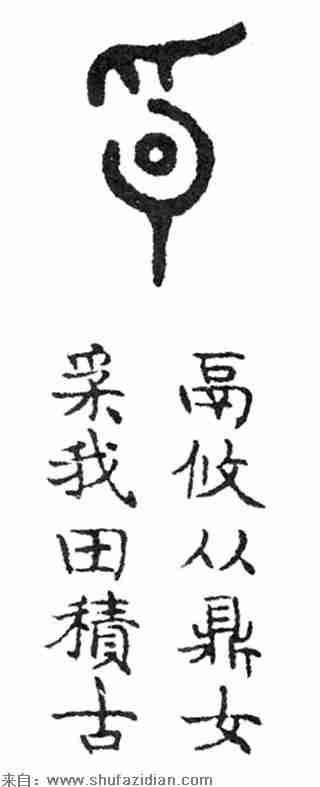 鬲攸从鼎女
我田積古
来自：www.shufazidian.com